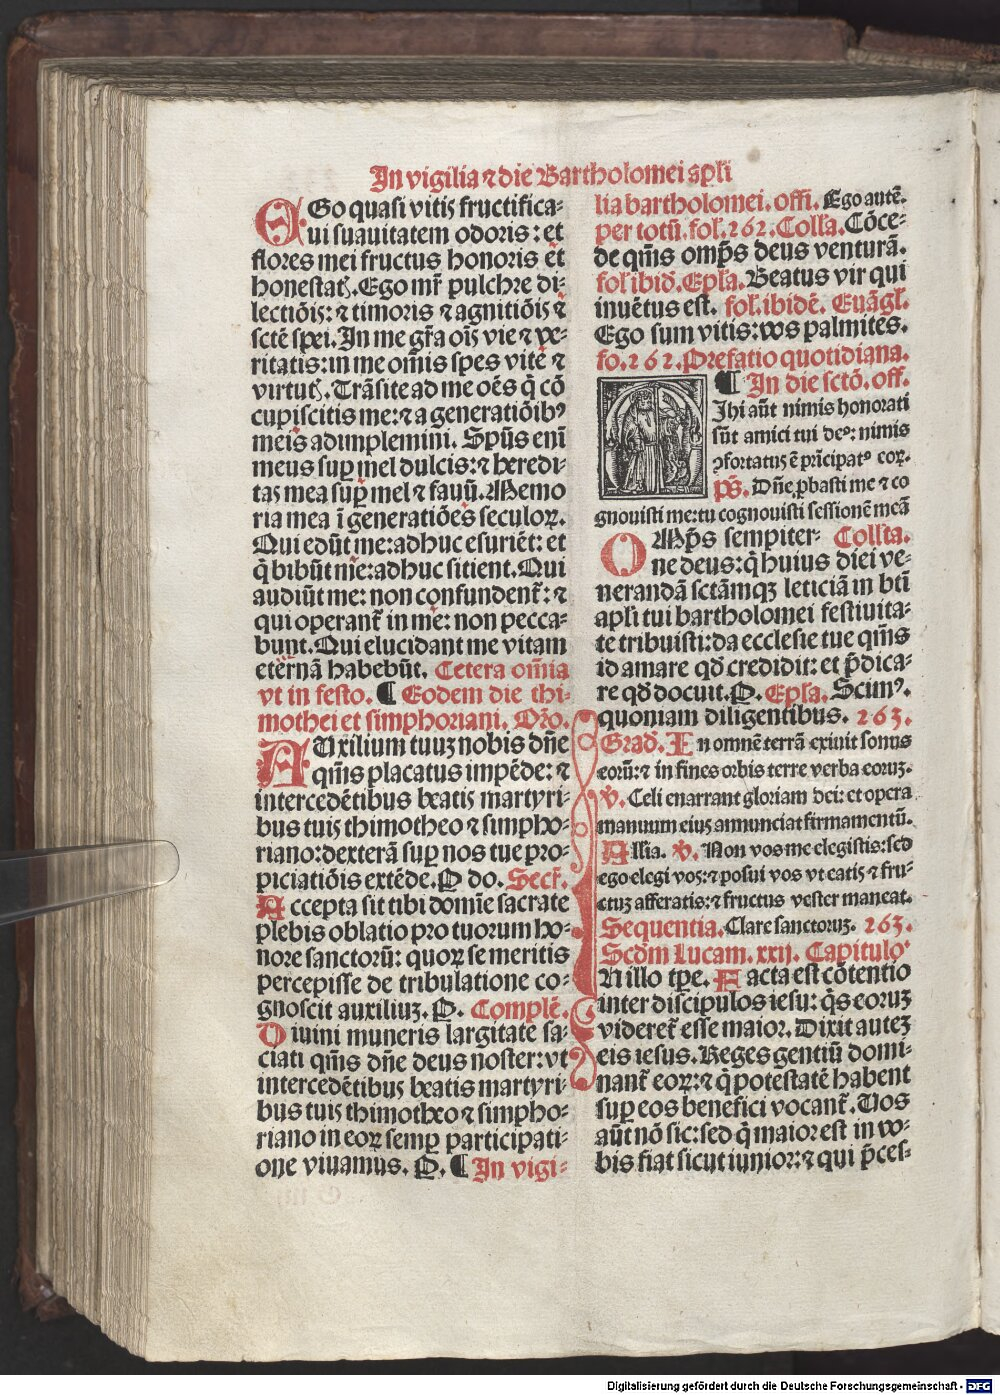 In vigilia ⁊ die Bartholomei apłi
EGo quasi vitis fructifica⸗
ui suauitatem odoris: et
flores mei fructus honoris et
honestatꝭ. Ego mr̄ pulchre di⸗
lectiōis: ⁊ timoris ⁊ agnitiōis ⁊
sctē spei. In me gr̄a oīs vie ⁊ ve⸗
ritatis: in me om̄is spes vite ⁊
virtutꝭ. Trāsite ad me oēs q̄ cō
cupiscitis me: ⁊ a generatiōibꝰ
meis adimplemini. Spūs enī
meus suꝑ mel dulcis: ⁊ heredi⸗
tas mea suꝑ mel ⁊ fauū. Memo
ria mea ī generatiōes seculoꝝ.
Qui edūt me: adhuc esuriēt: et
q̄ bibūt me: adhuc sitient. Qui
audiūt me: non confundent̄: ⁊
qui operant̄ in me: non pecca⸗
bunt. Qui elucidant me vitam
eternā habebūt. Cetera om̄ia
vt in festo. ¶ Eodem die thi⸗
mothei et simphoriani. Oro.
AUxilium tuuꝫ nobis dn̄e
qm̄s placatus impēde: ⁊
intercedētibus beatis martyri⸗
bus tuis thimotheo ⁊ simpho⸗
riano: dexterā suꝑ nos tue pro⸗
piciatiōis extēde. P do. Secr̄.
Accepta sit tibi domīe sacrate
plebis oblatio pro tuorum ho⸗
nore sanctorū: quoꝝ se meritis
percepisse de tribulatione co⸗
gnoscit auxiliuꝫ. P. Complē.
Diuini muneris largitate sa⸗
ciati qm̄s dn̄e deus noster: vt
intercedētibus beatis martyri⸗
bus tuis thimotheo ⁊ simpho⸗
riano in eoꝝ semꝑ participati⸗
one viuamus. P. ¶ In vigi⸗
lia bartholomei. offi. Ego autē.
per totū. fol. 262. Collā. Cōce⸗
de qm̄s omp̄s deus venturā.
fol ibid. Epła. Beatus vir qui
inuētus est. fol. ibidē. Euāgł.
Ego sum vitis: vos palmites.
fo. 262. Prefatio quotidiana.
¶ In die sctō. off.
MIhi aūt nimis honorati
sūt amici tui deꝰ: nimis
ↄfortatus ē prīcipatꝰ eoꝝ.
ps̄. Dn̄e ꝓbasti me ⁊ co
gnouisti me: tu cognouisti sessionē meā
OMp̄s sempiter⸗ Collcta.
ne deus: q̄ huius diei ve⸗
nerandā sctāmqꝫ leticiā in btī
apłi tui bartholomei festiuita⸗
te tribuisti: da ecclesie tue qm̄s
id amare qd̄ credidit: et p̄dica⸗
re qd̄ docuit. P. Epła. Scimꝰ.
quoniam diligentibus. 263.
Grad. In omnē terrā exiuit sonus
eorū: ⁊ in fines orbis terre verba eoruꝫ.
℣. Celi enarrant gloriam dei: et opera
manuum eius annunciat firmamentū.
Allīa. ℣. Non vos me elegistis: sed
ego elegi vos: ⁊ posui vos vt eatis ⁊ fru⸗
ctuꝫ afferatis: ⁊ fructus vester maneat.
Sequentia. Clare sanctoruꝫ. 263.
Scd̄m Lucam. xxij. Capitulo
IN illo tꝑe. Facta est cōtentio
inter discipulos iesu: q̄s eoruꝫ
videret̄ esse maior. Dixit auteꝫ
eis iesus. Reges gentiū domi⸗
nant̄ eoꝝ: ⁊ q̄ potestatē habent
suꝑ eos benefici vocant̄. Uos
aūt nō sic: sed q̄ maior est in vo⸗
bis fiat sicut iunior: ⁊ qui p̄ces⸗
Digitalisierung gefördert durch die Deutsche Forschungsgemeinschaft - DFG